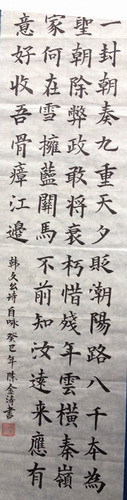 一封朝奏九重天夕貶潮陽路八千本為
聖朝除弊政敢將衰朽惜殘年雲橫秦嶺
家何在雪擁藍關馬不前知汝遠来應有
意好收吾骨瘴江邊
韓文公詩自咏癸巳年陳金濤書